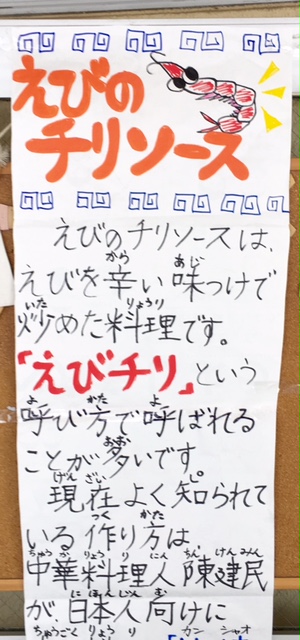 えびの
チリソース
えびのチリソースは、
えびを辛い味つけで
炒めた料理です。
「えびチリ」という
呼び方で呼ばれる
ことが多いです。
現在よく知られて
いる作り方は
中華料理人 陳建民
が日本人向けに